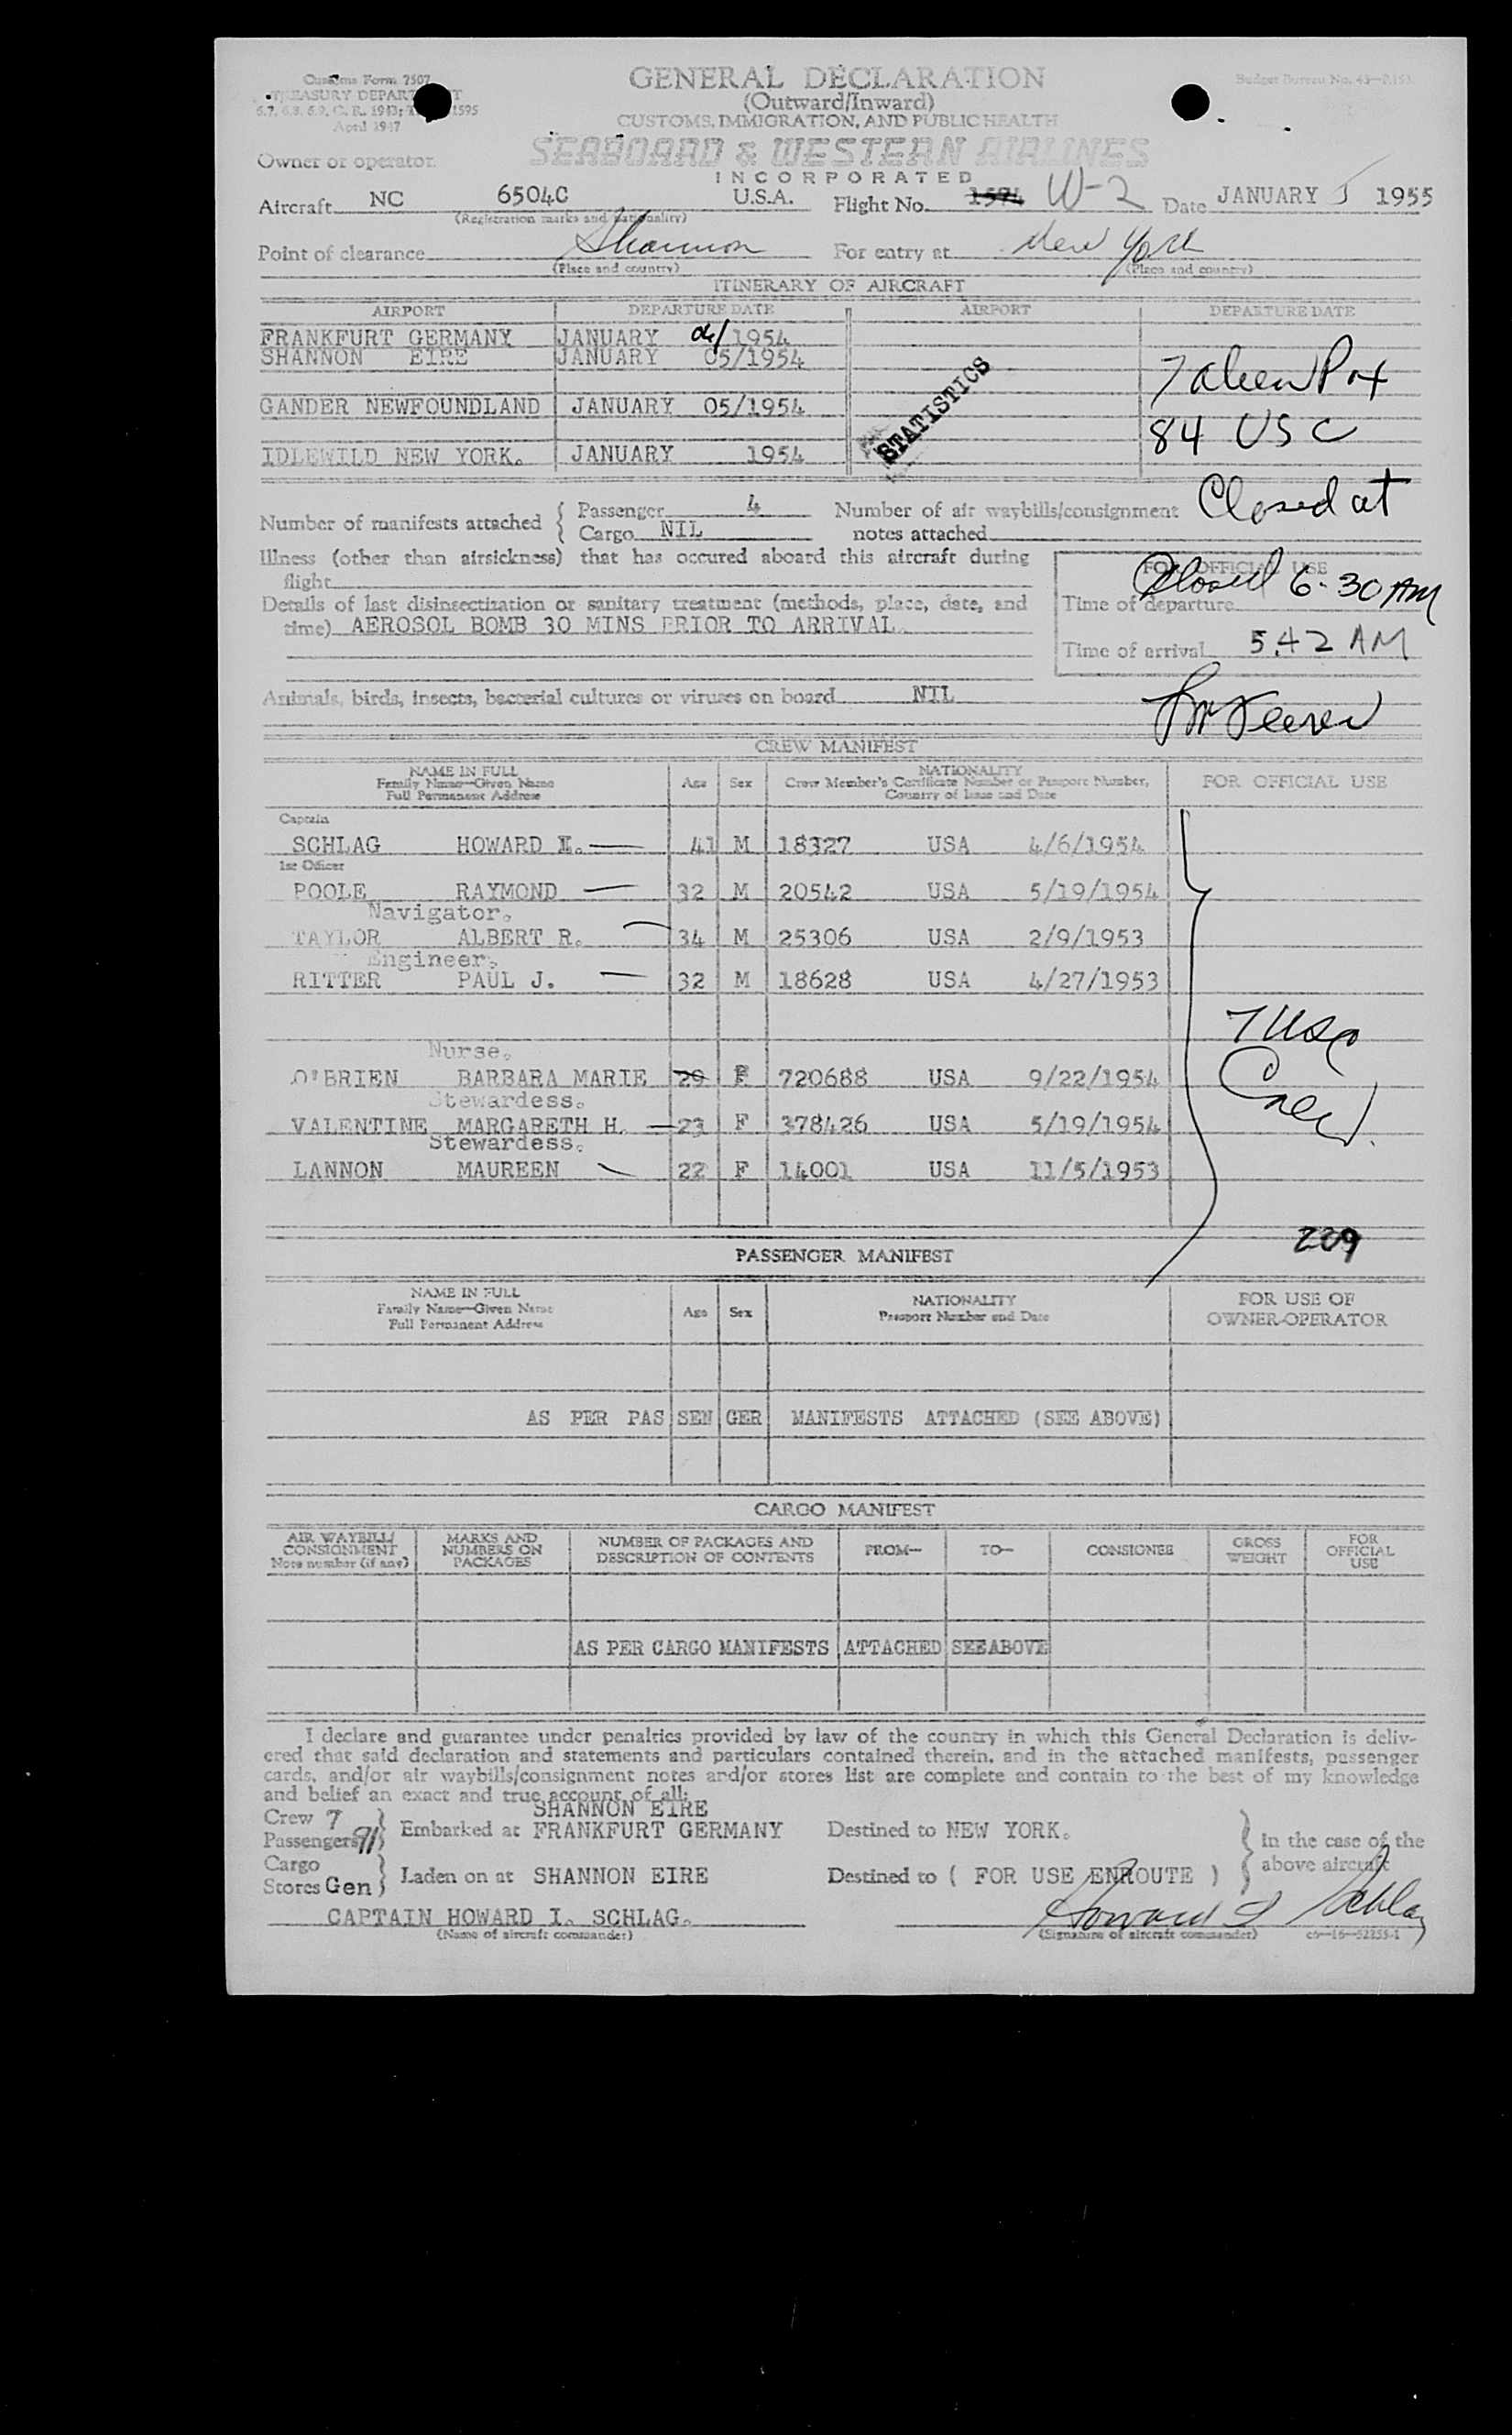 Customs Form 7507
TREASURY DEPARTMENT
April 1947
GENERAL DECLARATION
(Outward/Inward)
CUSTOMS, IMMIGRATION, AND PUBLIC HEALTH
SEABOARD & WESTERN AIRLINES
INCORPORATED
Owner or operator
Aircraft NC 6504C U.S.A. Flight No. 1594 W-2 Date JANUARY 5 1955
(Registration marks and nationality)
Point of clearance Shannon For entry at New York
(Place and country) (Place and country)
ITINERARY OF AIRCRAFT
AIRPORT DEPARTURE DATE AIRPORT DEPARTURE DATE
FRANKFURT GERMANY JANUARY 04/1954
SHANNON EIRE JANUARY 05/1954
GANDER NEWFOUNDLAND JANUARY 05/1954
IDLEWILD NEW YORK. JANUARY 1954
STATISTICS
7 alien
84 USC
Closed at
Number of manifests attached { Passenger 4 Number of air waybills/consignment
Cargo NIL notes attached
Illness (other than airsickness) that has occured aboard this aircraft during
flight
FOR OFFICIAL USE
Closed 6-30 AM
Details of last disinsectization or sanitary treatment (methods, place, date, and
time) AEROSOL BOMB 30 MINS PRIOR TO ARRIVAL.
Time of departure
Time of arrival 5.42 AM
Animals, birds, insects, bacterial cultures or viruses on board NIL
CREW MANIFEST
NAME IN FULL
Family Name—Given Name
Full Permanent Address
Age Sex
NATIONALITY
Crew Member's Certificate Number or Passport Number,
Country of Issue and Date
FOR OFFICIAL USE
Captain
SCHLAG HOWARD I. 41 M 18327 USA 4/6/1954
1st Officer
POOLE RAYMOND 32 M 20542 USA 5/19/1954
Navigator.
TAYLOR ALBERT R. 34 M 25306 USA 2/9/1953
Engineer.
RITTER PAUL J. 32 M 18628 USA 4/27/1953
7 USC
Crew
Nurse.
O'BRIEN BARBARA MARIE 29 F 720688 USA 9/22/1954
Stewardess.
VALENTINE MARGARETH H. 23 F 378426 USA 5/19/1954
Stewardess.
LANNON MAUREEN 22 F 14001 USA 11/5/1953
209
PASSENGER MANIFEST
NAME IN FULL
Family Name—Given Name
Full Permanent Address
Age Sex
NATIONALITY
Passport Number and Date
FOR USE OF
OWNER-OPERATOR
AS PER PASSENGER MANIFESTS ATTACHED (SEE ABOVE)
CARGO MANIFEST
AIR WAYBILL/
CONSIGNMENT
Note number (if any)
MARKS AND
NUMBERS ON
PACKAGES
NUMBER OF PACKAGES AND
DESCRIPTION OF CONTENTS
FROM—
TO—
CONSIGNEE
GROSS
WEIGHT
FOR
OFFICIAL
USE
AS PER CARGO MANIFESTS ATTACHED SEE ABOVE
I declare and guarantee under penalties provided by law of the country in which this General Declaration is deliv-
ered that said declaration and statements and particulars contained therein, and in the attached manifests, passenger
cards, and/or air waybills/consignment notes and/or stores list are complete and contain to the best of my knowledge
and belief an exact and true account of all:
SHANNON EIRE
Crew 7
Passengers 91 } Embarked at FRANKFURT GERMANY Destined to NEW YORK. In the case of the
Cargo above aircraft
Stores Gen } Laden on at SHANNON EIRE Destined to ( FOR USE ENROUTE )
CAPTAIN HOWARD I. SCHLAG. Howard I Schlag
(Name of aircraft commander) (Signature of aircraft commander)